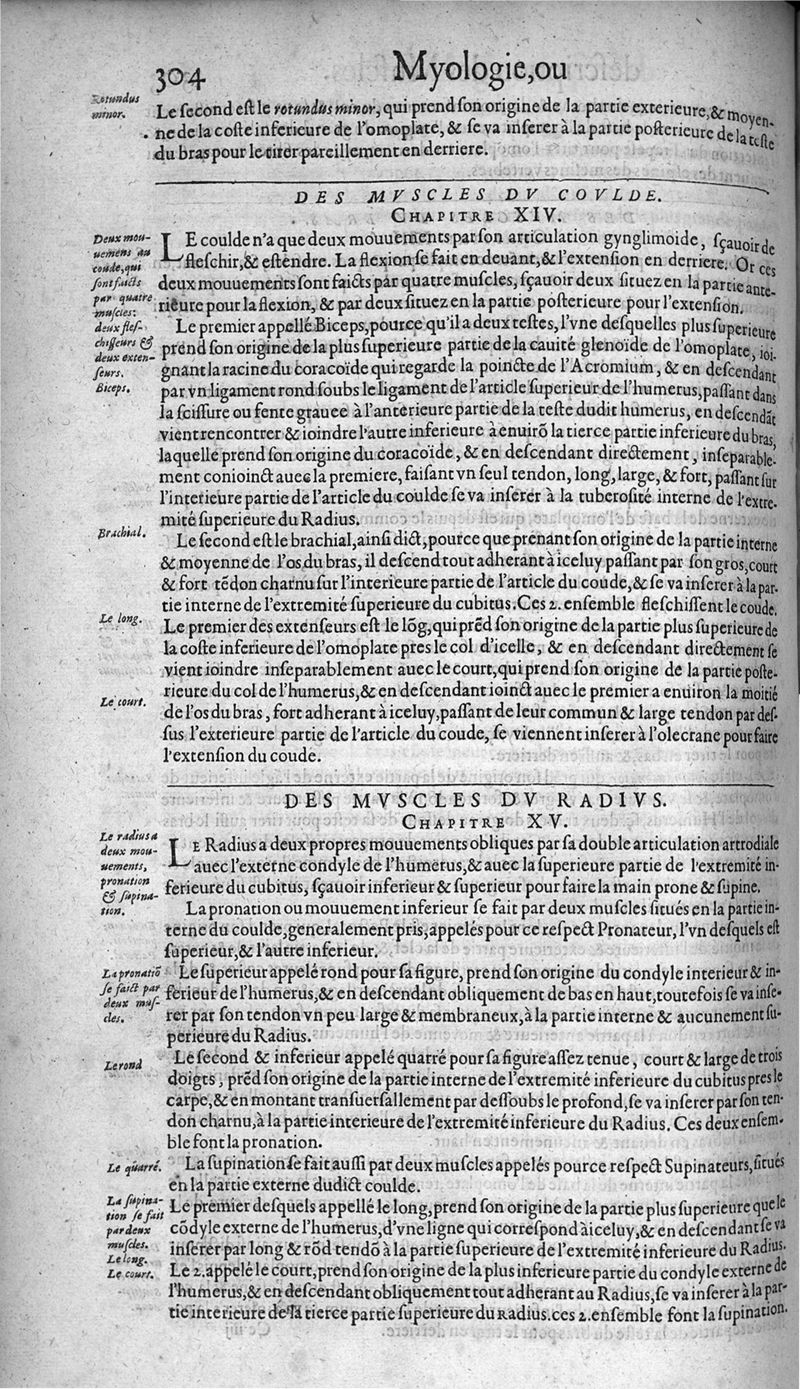 304
Myologie,ou
Rotundus
minor.
Le second est le rotundus minor, qui prend son origine de la partie exterieure,& moyen-
ne de la coste inferieure de l'omoplate, & se va inserer à la partie posterieure de la teste
du bras pour le titer pareillement en derriere.
DES MVSCLES DV COVLDE.
CHAPITRE XIV.
Deux mou-
uemens au
coude,qui
sont faicts
par quatre
muscles:
deux fles-
chisseurs &
deux exten-
seurs.
Biceps.
LE coulde n'a que deux mouuements par son articulation gynglimoide, sçauoir de
fleschir,& estendre. La flexion se fait en deuant,& l'extension en derriere. Or ces
deux mouuements sont faicts par quatre muscles, sçauoir deux situez en la partie ante-
rieure pour la flexion, & par deux situez en la partie posterieure pour l'extension.
Le premier appellé Biceps,pource qu'il a deux testes, l'vne desquelles plus superieure
prend son origine de la plus superieure partie de la cauité glenoïde de l'omoplate, ioi-
gnant la racine du coracoïde qui regarde la poincte de l'Acromium, & en descendant
par vn ligament rond soubs le ligament de l'article superieur de l'humerus,passant dans
la scissure ou fente grauee à l'anterieure partie de la teste dudit humerus, en descendāt
vient rencontrer & ioindre l'autre inferieure à enuirō la tierce partie inferieure du bras,
laquelle prend son origine du coracoïde, & en descendant directement, inseparable-
ment conioinct auec la premiere, faisant vn seul tendon, long, large, & fort, passant sur
l'interieure partie de l'article du coulde se va inserer à la tuberosité interne de l'extre-
mité superieure du Radius.
Brachial.
Le second est le brachial,ainsi dict,pource que prenant son origine de la partie interne
& moyenne de l'os du bras, il descend tout adherant à iceluy passant par son gros,court
& fort tēdon charnu sur l'interieure partie de l'article du coude,& se va inserer à la par-
tie interne de l'extremité superieure du cubitus.Ces 2. ensemble fleschissent le coude.
Le long.
Le premier des extenseurs est le lōg,qui prēd son origine de la partie plus superieure de
la coste inferieure de l'omoplate pres le col d'icelle, & en descendant directement se
vient ioindre inseparablement auec le court,qui prend son origine de la partie poste-
rieure du col de l'humerus,& en descendant ioinct auec le premier a enuiron la moitié
Le court.
de l'os du bras, fort adherant à iceluy,passant de leur commun & large tendon par des-
sus l'exterieure partie de l'article du coude, se viennent inserer à l'olecrane pour faire
l'extension du coude.
DES MVSCLES DV RADIVS.
CHAPITRE XV.
Le radius a
deux mou-
uements,
pronation
& supina-
tion.
LE Radius a deux propres mouuements obliques par sa double articulation artrodiale
auec l'externe condyle de l'humerus,& auec la superieure partie de l'extremité in-
ferieure du cubitus, sçauoir inferieur & superieur pour faire la main prone & supine.
La pronation ou mouuement inferieur se fait par deux muscles situés en la partie in-
terne du coulde,generalement pris,appelés pour ce respect Pronateur, l'vn desquels est
superieur,& l'autre inferieur.
La pronatiō
se faict par
deux mus-
cles.
Le superieur appelé rond pour sa figure, prend son origine du condyle interieur & in-
ferieur de l'humerus,& en descendant obliquement de bas en haut,toutefois se va inse-
rer par son tendon vn peu large & membraneux,à la partie interne & aucunement su-
perieure du Radius.
Le rond
Le second & inferieur appelé quarré pour sa figure assez tenue, court & large de trois
doigts, prēd son origine de la partie interne de l'extremité inferieure du cubitus pres le
carpe,& en montant transuersallement par dessoubs le profond,se va inserer par son ten-
don charnu,à la partie interieure de l'extremité inferieure du Radius. Ces deux ensem-
ble font la pronation.
Le quarré.
La supination se fait aussi par deux muscles appelés pource respect Supinateurs,situés
en la partie externe dudict coulde.
La supina-
tion se fait
par deux
muscles.
Le long.
Le court.
Le premier desquels appellé le long,prend son origine de la partie plus superieure que le
cōdyle externe de l'humerus,d'vne ligne qui correspond à iceluy,& en descendant se va
inserer par long & rōd tendō à la partie superieure de l'extremité inferieure du Radius.
Le 2.appelé le court,prend son origine de la plus inferieure partie du condyle externe de
l'humerus,& en descendant obliquement tout adherant au Radius,se va inserer à la par-
tie interieure de la tierce partie superieure du Radius.ces 2.ensemble font la supination.